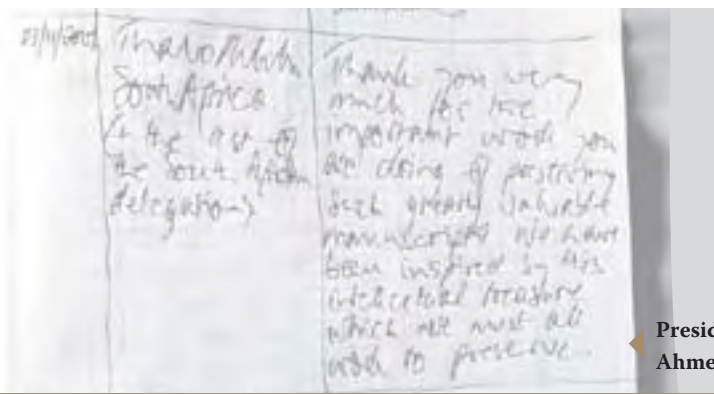 Thabo Mbeki
South Africa
(+ the rest of
the South African
delegation)
Thank you very
much for the
important work you
are doing of preserving
such greatly valuable
manuscripts. We have
been inspired by this
intellectual treasure
which we must all
work to preserve.
Presid
Ahme